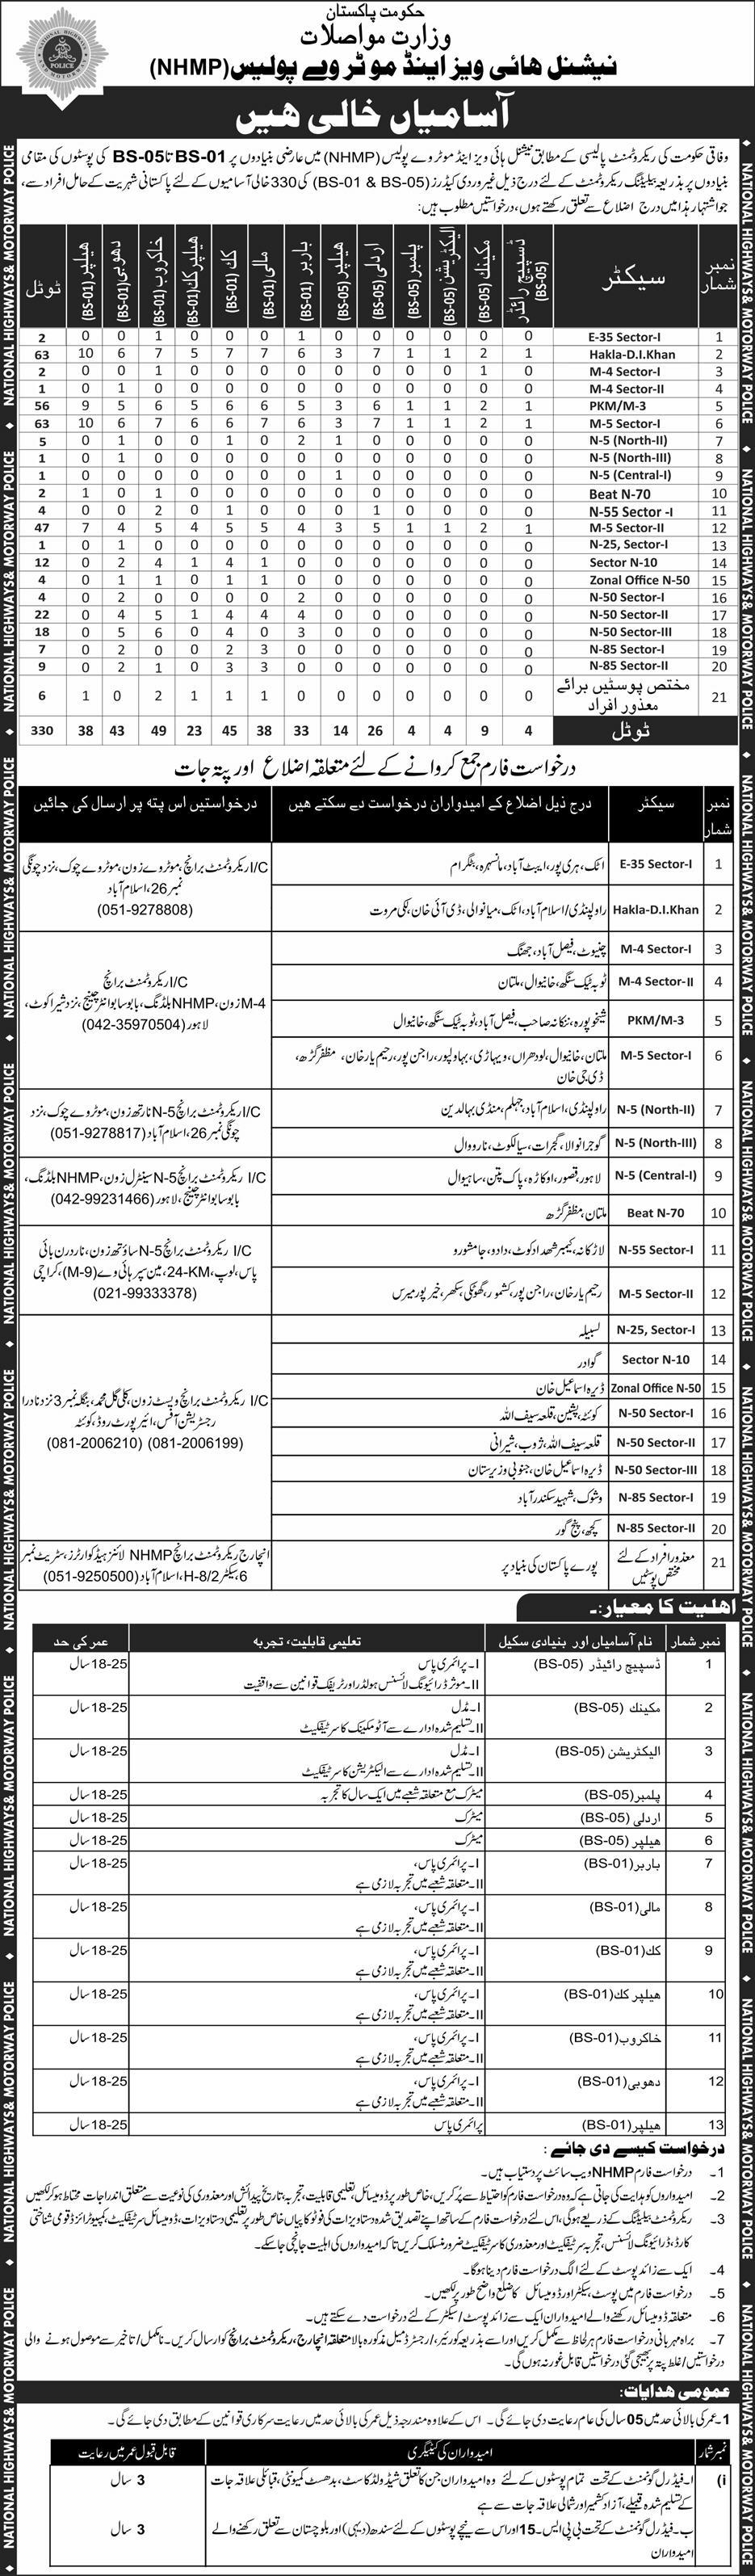 حکومت پاکستان
وزارت مواصلات
نیشنل ھائی ویز اینڈ موٹر وے پولیس (NHMP)
آسامیاں خالی ھیں
وفاقی حکومت کی ریکروٹمنٹ پالیسی کے مطابق نیشنل ہائی ویز اینڈ موٹر وے پولیس (NHMP) میں عارضی بنیادوں پر BS-01 تا BS-05 کی پوسٹوں کی مقامی
بنیادوں پر بذریعہ بیلیٹنگ ریکروٹمنٹ کے لئے درج ذیل غیر وردی کیڈرز (BS-01 & BS-05) کی 330 خالی آسامیوں کے لئے پاکستانی شہریت کے حامل افراد سے،
جو اشتہار ہذا میں درج اضلاع سے تعلق رکھتے ہوں، درخواستیں مطلوب ہیں:
نمبر شمار | سیکٹر | ڈسپیچ رائڈر (BS-05) | مکینک (BS-05) | الیکٹریشن (BS-05) | پلمبر (BS-05) | اردلی (BS-05) | ھیلپر (BS-05) | باربر (BS-01) | مالی (BS-01) | کک (BS-01) | ھیلپر کک (BS-01) | خاکروب (BS-01) | دھوبی (BS-01) | ھیلپر (BS-01) | ٹوٹل
1 E-35 Sector-I 0 0 0 0 0 0 1 0 0 0 1 0 0 2
2 Hakla-D.I.Khan 1 2 1 1 7 3 6 7 7 5 7 6 10 63
3 M-4 Sector-I 0 1 0 0 0 0 0 0 0 0 1 0 0 2
4 M-4 Sector-II 0 0 0 0 0 0 0 0 0 0 0 1 0 1
5 PKM/M-3 1 2 1 1 6 3 5 6 6 5 6 5 9 56
6 M-5 Sector-I 1 2 1 1 7 3 6 7 6 6 7 6 10 63
7 N-5 (North-II) 0 0 0 0 0 1 2 0 1 0 0 1 0 5
8 N-5 (North-III) 0 0 0 0 0 0 0 0 0 0 0 1 0 1
9 N-5 (Central-I) 0 0 0 0 0 1 0 0 0 0 0 0 0 1
10 Beat N-70 0 0 0 0 0 0 0 0 0 0 1 0 1 2
11 N-55 Sector -I 0 0 0 0 1 0 0 0 1 0 2 0 0 4
12 M-5 Sector-II 1 2 1 1 5 3 4 5 5 4 5 4 7 47
13 N-25, Sector-I 0 0 0 0 0 0 0 0 0 0 0 1 0 1
14 Sector N-10 0 0 0 0 0 0 0 1 4 1 4 2 0 12
15 Zonal Office N-50 0 0 0 0 0 0 0 1 1 0 1 1 0 4
16 N-50 Sector-I 0 0 0 0 0 0 2 0 0 0 0 2 0 4
17 N-50 Sector-II 0 0 0 0 0 0 4 4 4 1 5 4 0 22
18 N-50 Sector-III 0 0 0 0 0 0 3 0 4 0 6 5 0 18
19 N-85 Sector-I 0 0 0 0 0 0 0 3 2 0 0 2 0 7
20 N-85 Sector-II 0 0 0 0 0 0 0 3 3 0 1 2 0 9
21 مختص پوسٹیں برائے معذور افراد 0 0 0 0 0 0 0 1 1 1 2 0 1 6
ٹوٹل 4 9 4 4 26 14 33 38 45 23 49 43 38 330
درخواست فارم جمع کروانے کے لئے متعلقہ اضلاع اور پتہ جات
نمبر شمار | سیکٹر | درج ذیل اضلاع کے امیدواران درخواست دے سکتے ھیں | درخواستیں اس پتہ پر ارسال کی جائیں
1 E-35 Sector-I اٹک، ہری پور، ایبٹ آباد، مانسہرہ، بٹگرام
2 Hakla-D.I.Khan راولپنڈی/اسلام آباد، اٹک، میانوالی، ڈی آئی خان، لکی مروت
I/C ریکروٹمنٹ برانچ، موٹر وے زون، موٹر وے چوک، نزد چونگی
نمبر 26، اسلام آباد
(051-9278808)
3 M-4 Sector-I چنیوٹ، فیصل آباد، جھنگ
4 M-4 Sector-II ٹوبہ ٹیک سنگھ، خانیوال، ملتان
5 PKM/M-3 شیخوپورہ، ننکانہ صاحب، فیصل آباد، ٹوبہ ٹیک سنگھ، خانیوال
6 M-5 Sector-I ملتان، خانیوال، لودھراں، ویہاڑی، بہاولپور، راجن پور، رحیم یار خان، مظفر گڑھ،
ڈی جی خان
I/C ریکروٹمنٹ برانچ
M-4 زون، NHMP بلڈنگ، بابو سابو انٹر چینج، نزد شیرا کوٹ،
لاہور (042-35970504)
7 N-5 (North-II) راولپنڈی، اسلام آباد، جہلم، منڈی بہالدین
8 N-5 (North-III) گوجرانوالا، گجرات، سیالکوٹ، نارووال
I/C ریکروٹمنٹ برانچ N-5 نارتھ زون، موٹر وے چوک، نزد
چونگی نمبر 26، اسلام آباد (051-9278817)
9 N-5 (Central-I) لاہور، قصور، اوکاڑہ، پاک پتن، ساہیوال
10 Beat N-70 ملتان، مظفر گڑھ
I/C ریکروٹمنٹ برانچ N-5 سینٹرل زون، NHMP بلڈنگ،
بابو سابو انٹر چینج، لاہور (042-99231466)
11 N-55 Sector-I لاڑکانہ، کیمبر شھداد کوٹ، دادو، جامشورو
12 M-5 Sector-II رحیم یار خان، راجن پور، کشمور، گھوٹکی، سکھر، خیر پور میرس
I/C ریکروٹمنٹ برانچ N-5 ساؤتھ زون، ناردرن بائی
پاس، لوپ، 24-KM، مین سپر ہائی وے (M-9)، کراچی
(021-99333378)
13 N-25, Sector-I لسبیلہ
14 Sector N-10 گوادر
15 Zonal Office N-50 ڈیرہ اسماعیل خان
16 N-50 Sector-I کوئٹہ، پشین، قلعہ سیف اللہ
17 N-50 Sector-II قلعہ سیف اللہ، ژوب، شیرانی
18 N-50 Sector-III ڈیرہ اسماعیل خان، جنوبی وزیرستان
19 N-85 Sector-I وشوک، شہید سکندر آباد
20 N-85 Sector-II کچھ، پنج گور
I/C ریکروٹمنٹ برانچ ویسٹ زون، کلی گل محمد، بنگلہ نمبر 3 نزد نادرا
رجسٹریشن آفس، ائیر پورٹ روڈ، کوئٹہ
(081-2006210) (081-2006199)
21 معذور افراد کے لئے مختص پوسٹیں پورے پاکستان کی بنیاد پر
انچارج ریکروٹمنٹ برانچ NHMP لائنز ہیڈ کوارٹرز، سٹریٹ نمبر
6 سیکٹر H-8/2، اسلام آباد (051-9250500)
اھلیت کا معیار:۔
نمبر شمار | نام آسامیاں اور بنیادی سکیل | تعلیمی قابلیت، تجربہ | عمر کی حد
1 ڈسپیچ رائیڈر (BS-05) I۔ پرائمری پاس 18-25 سال
II۔ موثر ڈرائیونگ لائسنس ہولڈر اور ٹریفک قوانین سے واقفیت
2 مکینک (BS-05) I۔ مڈل 18-25 سال
II۔ تسلیم شدہ ادارے سے آٹو مکینک کا سرٹیفکیٹ
3 الیکٹریشن (BS-05) I۔ مڈل 18-25 سال
II۔ تسلیم شدہ ادارے سے الیکٹریشن کا سرٹیفکیٹ
4 پلمبر (BS-05) میٹرک مع متعلقہ شعبے میں ایک سال کا تجربہ 18-25 سال
5 اردلی (BS-05) میٹرک 18-25 سال
6 ھیلپر (BS-05) میٹرک 18-25 سال
7 باربر (BS-01) I۔ پرائمری پاس، 18-25 سال
II۔ متعلقہ شعبے میں تجربہ لازمی ہے
8 مالی (BS-01) I۔ پرائمری پاس، 18-25 سال
II۔ متعلقہ شعبے میں تجربہ لازمی ہے
9 کک (BS-01) I۔ پرائمری پاس، 18-25 سال
II۔ متعلقہ شعبے میں تجربہ لازمی ہے
10 ھیلپر کک (BS-01) I۔ پرائمری پاس، 18-25 سال
II۔ متعلقہ شعبے میں تجربہ لازمی ہے
11 خاکروب (BS-01) I۔ پرائمری پاس، 18-25 سال
II۔ متعلقہ شعبے میں تجربہ لازمی ہے
12 دھوبی (BS-01) I۔ پرائمری پاس، 18-25 سال
II۔ متعلقہ شعبے میں تجربہ لازمی ہے
13 ھیلپر (BS-01) پرائمری پاس 18-25 سال
درخواست کیسے دی جائے :
1۔ درخواست فارم NHMP ویب سائٹ پر دستیاب ہیں۔
2۔ امیدواروں کو ہدایت کی جاتی ہے کہ وہ درخواست فارم کو احتیاط سے پُر کریں، خاص طور پر ڈومیسائل، تعلیمی قابلیت، تجربہ، تاریخ پیدائش اور معذوری کی نوعیت سے متعلق اندراجات محتاط ہو کر لکھیں
3۔ ریکروٹمنٹ بیلیٹنگ کے ذریعے ہوگی، اس لئے درخواست فارم کے ساتھ اپنے تصدیق شدہ دستاویزات کی فوٹو کاپیاں خاص طور پر تعلیمی دستاویزات، ڈومیسائل سرٹیفکیٹ، کمپیوٹرائزڈ قومی شناختی
کارڈ، ڈرائیونگ لائسنس، تجربہ سرٹیفکیٹ اور معذوری کا سرٹیفکیٹ ضرور منسلک کریں تاکہ امیدواروں کی اہلیت جانچی جاسکے۔
4۔ ایک سے زائد پوسٹ کے لئے الگ درخواست فارم دینا ہوگا۔
5۔ درخواست فارم میں پوسٹ، سیکٹر اور ڈومیسائل کا ضلع واضح طور پر لکھیں۔
6۔ متعلقہ ڈومیسائل رکھنے والے امیدواران ایک سے زائد پوسٹ/سیکٹر کے لئے درخواست دے سکتے ہیں۔
7۔ براہ مہربانی درخواست فارم ہر لحاظ سے مکمل کریں اور اسے بذریعہ کورئیر/رجسٹرڈ میل مذکورہ بالا متعلقہ انچارج، ریکروٹمنٹ برانچ کو ارسال کریں۔ نامکمل/تاخیر سے موصول ہونے والی
درخواستیں/غلط پتہ پر بھیجی گئی درخواستیں قابل غور نہ ہوں گی۔
عمومی ھدایات:
1۔ عمر کی بالائی حد میں 05 سال کی عام رعایت دی جائے گی۔ اس کے علاوہ مندرجہ ذیل عمر کی بالائی حد میں رعایت سرکاری قوانین کے مطابق دی جائے گی۔
نمبر شمار | امیدواران کی کیٹیگری | قابل قبول عمر میں رعایت
(i ا۔ فیڈرل گورنمنٹ کے تحت تمام پوسٹوں کے لئے وہ امیدواران جن کا تعلق شیڈولڈ کاسٹ، بدھسٹ کمیونٹی، قبائلی علاقہ جات 3 سال
کے تسلیم شدہ قبیلے، آزاد کشمیر اور شمالی علاقہ جات سے ہے
ب۔ فیڈرل گورنمنٹ کے تحت بی پی ایس۔15 اور اس سے نیچے پوسٹوں کے لئے سندھ (دیہی) اور بلوچستان سے تعلق رکھنے والے 3 سال
امیدواران
NATIONAL HIGHWAYS& MOTORWAY POLICE